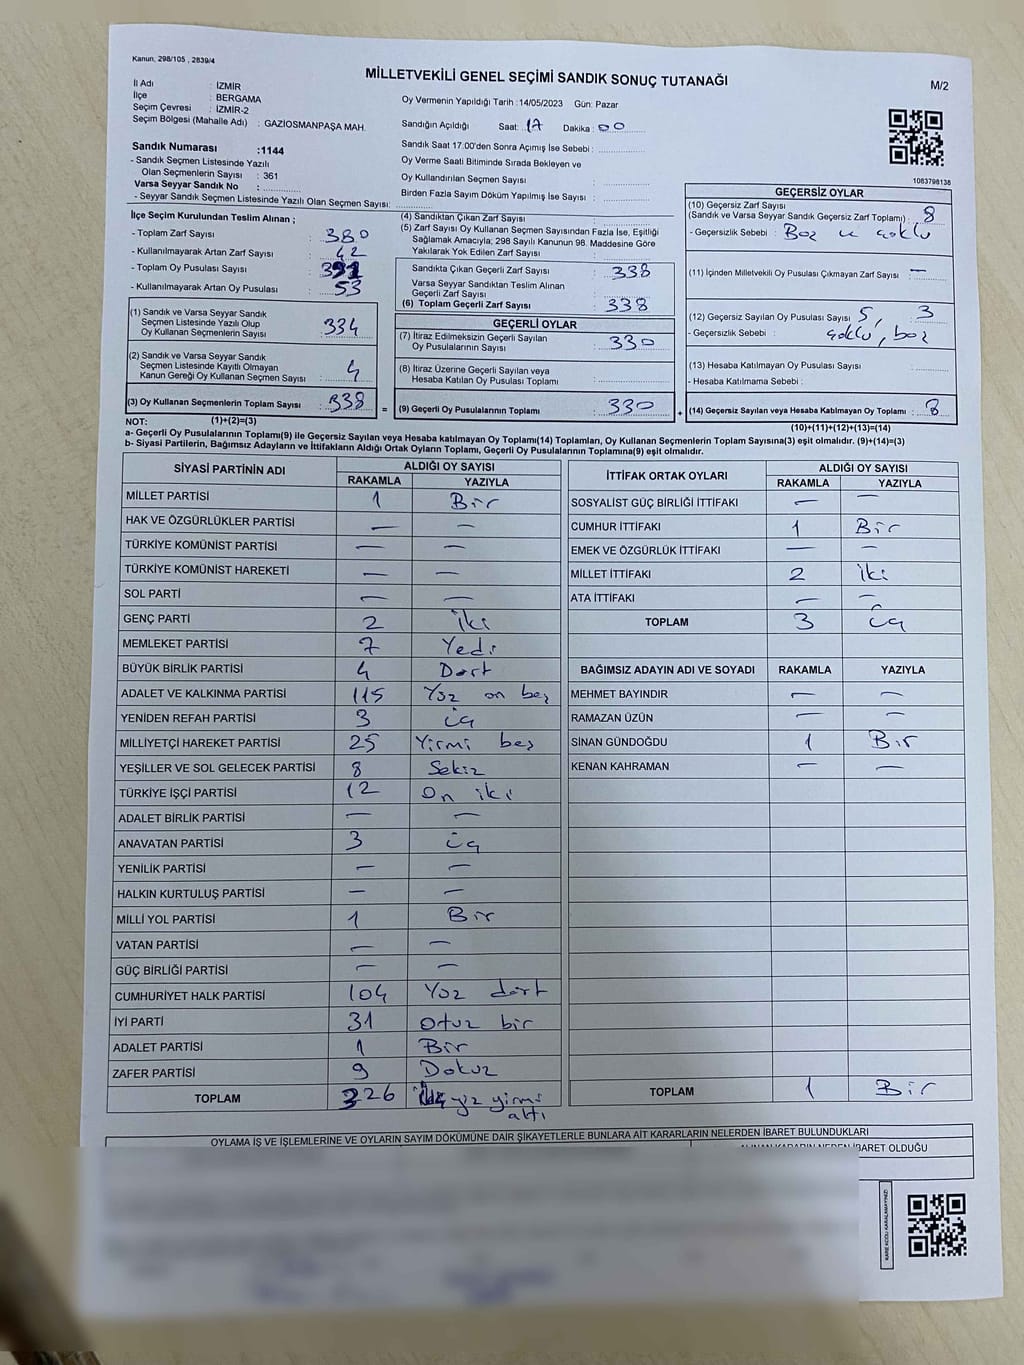 Kanun, 298/105 , 2839/4
MİLLETVEKİLİ GENEL SEÇİMİ SANDIK SONUÇ TUTANAĞI
M/2
İl Adı : İZMİR
İlçe : BERGAMA
Seçim Çevresi : İZMİR-2
Seçim Bölgesi (Mahalle Adı) : GAZİOSMANPAŞA MAH.
Sandık Numarası :1144
- Sandık Seçmen Listesinde Yazılı
Olan Seçmenlerin Sayısı : 361
Varsa Seyyar Sandık No :
- Seyyar Sandık Seçmen Listesinde Yazılı Olan Seçmen Sayısı:
Oy Vermenin Yapıldığı Tarih :14/05/2023 Gün: Pazar
Sandığın Açıldığı Saat: 17 Dakika: 00
Sandık Saat 17.00'den Sonra Açımış İse Sebebi :
Oy Verme Saati Bitiminde Sırada Bekleyen ve
Oy Kullandırılan Seçmen Sayısı :
Birden Fazla Sayım Döküm Yapılmış İse Sayısı :
1083798138
İlçe Seçim Kurulundan Teslim Alınan ;
- Toplam Zarf Sayısı : 380
- Kullanılmayarak Artan Zarf Sayısı : 42
- Toplam Oy Pusulası Sayısı : 391
- Kullanılmayarak Artan Oy Pusulası : 53
(1) Sandık ve Varsa Seyyar Sandık
Seçmen Listesinde Yazılı Olup
Oy Kullanan Seçmenlerin Sayısı : 334
(2) Sandık ve Varsa Seyyar Sandık
Seçmen Listesinde Kayıtlı Olmayan
Kanun Gereği Oy Kullanan Seçmen Sayısı : 4
(3) Oy Kullanan Seçmenlerin Toplam Sayısı : 338
(1)+(2)=(3)
(4) Sandıktan Çıkan Zarf Sayısı :
(5) Zarf Sayısı Oy Kullanan Seçmen Sayısından Fazla İse, Eşitliği
Sağlamak Amacıyla; 298 Sayılı Kanunun 98. Maddesine Göre
Yakılarak Yok Edilen Zarf Sayısı :
Sandıkta Çıkan Geçerli Zarf Sayısı : 338
Varsa Seyyar Sandıktan Teslim Alınan
Geçerli Zarf Sayısı :
(6) Toplam Geçerli Zarf Sayısı : 338
GEÇERLİ OYLAR
(7) İtiraz Edilmeksizin Geçerli Sayılan
Oy Pusulalarının Sayısı : 330
(8) İtiraz Üzerine Geçerli Sayılan veya
Hesaba Katılan Oy Pusulası Toplamı :
= (9) Geçerli Oy Pusulalarının Toplamı : 330 +
GEÇERSİZ OYLAR
(10) Geçersiz Zarf Sayısı
(Sandık ve Varsa Seyyar Sandık Geçersiz Zarf Toplamı) : 8
- Geçersizlik Sebebi : Boz ve çoklu
(11) İçinden Milletvekili Oy Pusulası Çıkmayan Zarf Sayısı : —
(12) Geçersiz Sayılan Oy Pusulası Sayısı : 5, 3
- Geçersizlik Sebebi : çoklu, boz
(13) Hesaba Katılmayan Oy Pusulası Sayısı :
- Hesaba Katılmama Sebebi :
(14) Geçersiz Sayılan veya Hesaba Katılmayan Oy Toplamı : 8
(10)+(11)+(12)+(13)=(14)
NOT:
a- Geçerli Oy Pusulalarının Toplamı(9) ile Geçersiz Sayılan veya Hesaba katılmayan Oy Toplamı(14) Toplamları, Oy Kullanan Seçmenlerin Toplam Sayısına(3) eşit olmalıdır. (9)+(14)=(3)
b- Siyasi Partilerin, Bağımsız Adayların ve İttifakların Aldığı Ortak Oyların Toplamı, Geçerli Oy Pusulalarının Toplamına(9) eşit olmalıdır.
SİYASİ PARTİNİN ADI ALDIĞI OY SAYISI
RAKAMLA YAZIYLA
MİLLET PARTİSİ 1 Bir
HAK VE ÖZGÜRLÜKLER PARTİSİ — —
TÜRKİYE KOMÜNİST PARTİSİ — —
TÜRKİYE KOMÜNİST HAREKETİ — —
SOL PARTİ — —
GENÇ PARTİ 2 İki
MEMLEKET PARTİSİ 7 Yedi
BÜYÜK BİRLİK PARTİSİ 4 Dört
ADALET VE KALKINMA PARTİSİ 115 Yüz on beş
YENİDEN REFAH PARTİSİ 3 üç
MİLLİYETÇİ HAREKET PARTİSİ 25 Yirmi beş
YEŞİLLER VE SOL GELECEK PARTİSİ 8 Sekiz
TÜRKİYE İŞÇİ PARTİSİ 12 On iki
ADALET BİRLİK PARTİSİ — —
ANAVATAN PARTİSİ 3 üç
YENİLİK PARTİSİ — —
HALKIN KURTULUŞ PARTİSİ — —
MİLLİ YOL PARTİSİ 1 Bir
VATAN PARTİSİ — —
GÜÇ BİRLİĞİ PARTİSİ — —
CUMHURİYET HALK PARTİSİ 104 Yüz dört
İYİ PARTİ 31 Otuz bir
ADALET PARTİSİ 1 Bir
ZAFER PARTİSİ 9 Dokuz
TOPLAM 326 üç yüz yirmi
altı
İTTİFAK ORTAK OYLARI ALDIĞI OY SAYISI
RAKAMLA YAZIYLA
SOSYALİST GÜÇ BİRLİĞİ İTTİFAKI — —
CUMHUR İTTİFAKI 1 Bir
EMEK VE ÖZGÜRLÜK İTTİFAKI — —
MİLLET İTTİFAKI 2 İki
ATA İTTİFAKI — —
TOPLAM 3 üç
BAĞIMSIZ ADAYIN ADI VE SOYADI RAKAMLA YAZIYLA
MEHMET BAYINDIR — —
RAMAZAN ÜZÜN — —
SİNAN GÜNDOĞDU 1 Bir
KENAN KAHRAMAN — —
TOPLAM 1 Bir
OYLAMA İŞ VE İŞLEMLERİNE VE OYLARIN SAYIM DÖKÜMÜNE DAİR ŞİKAYETLERLE BUNLARA AİT KARARLARIN NELERDEN İBARET BULUNDUKLARI
ALINAN KARARIN NEDEN İBARET OLDUĞU
KARE KODU KARALAMAYINIZ!